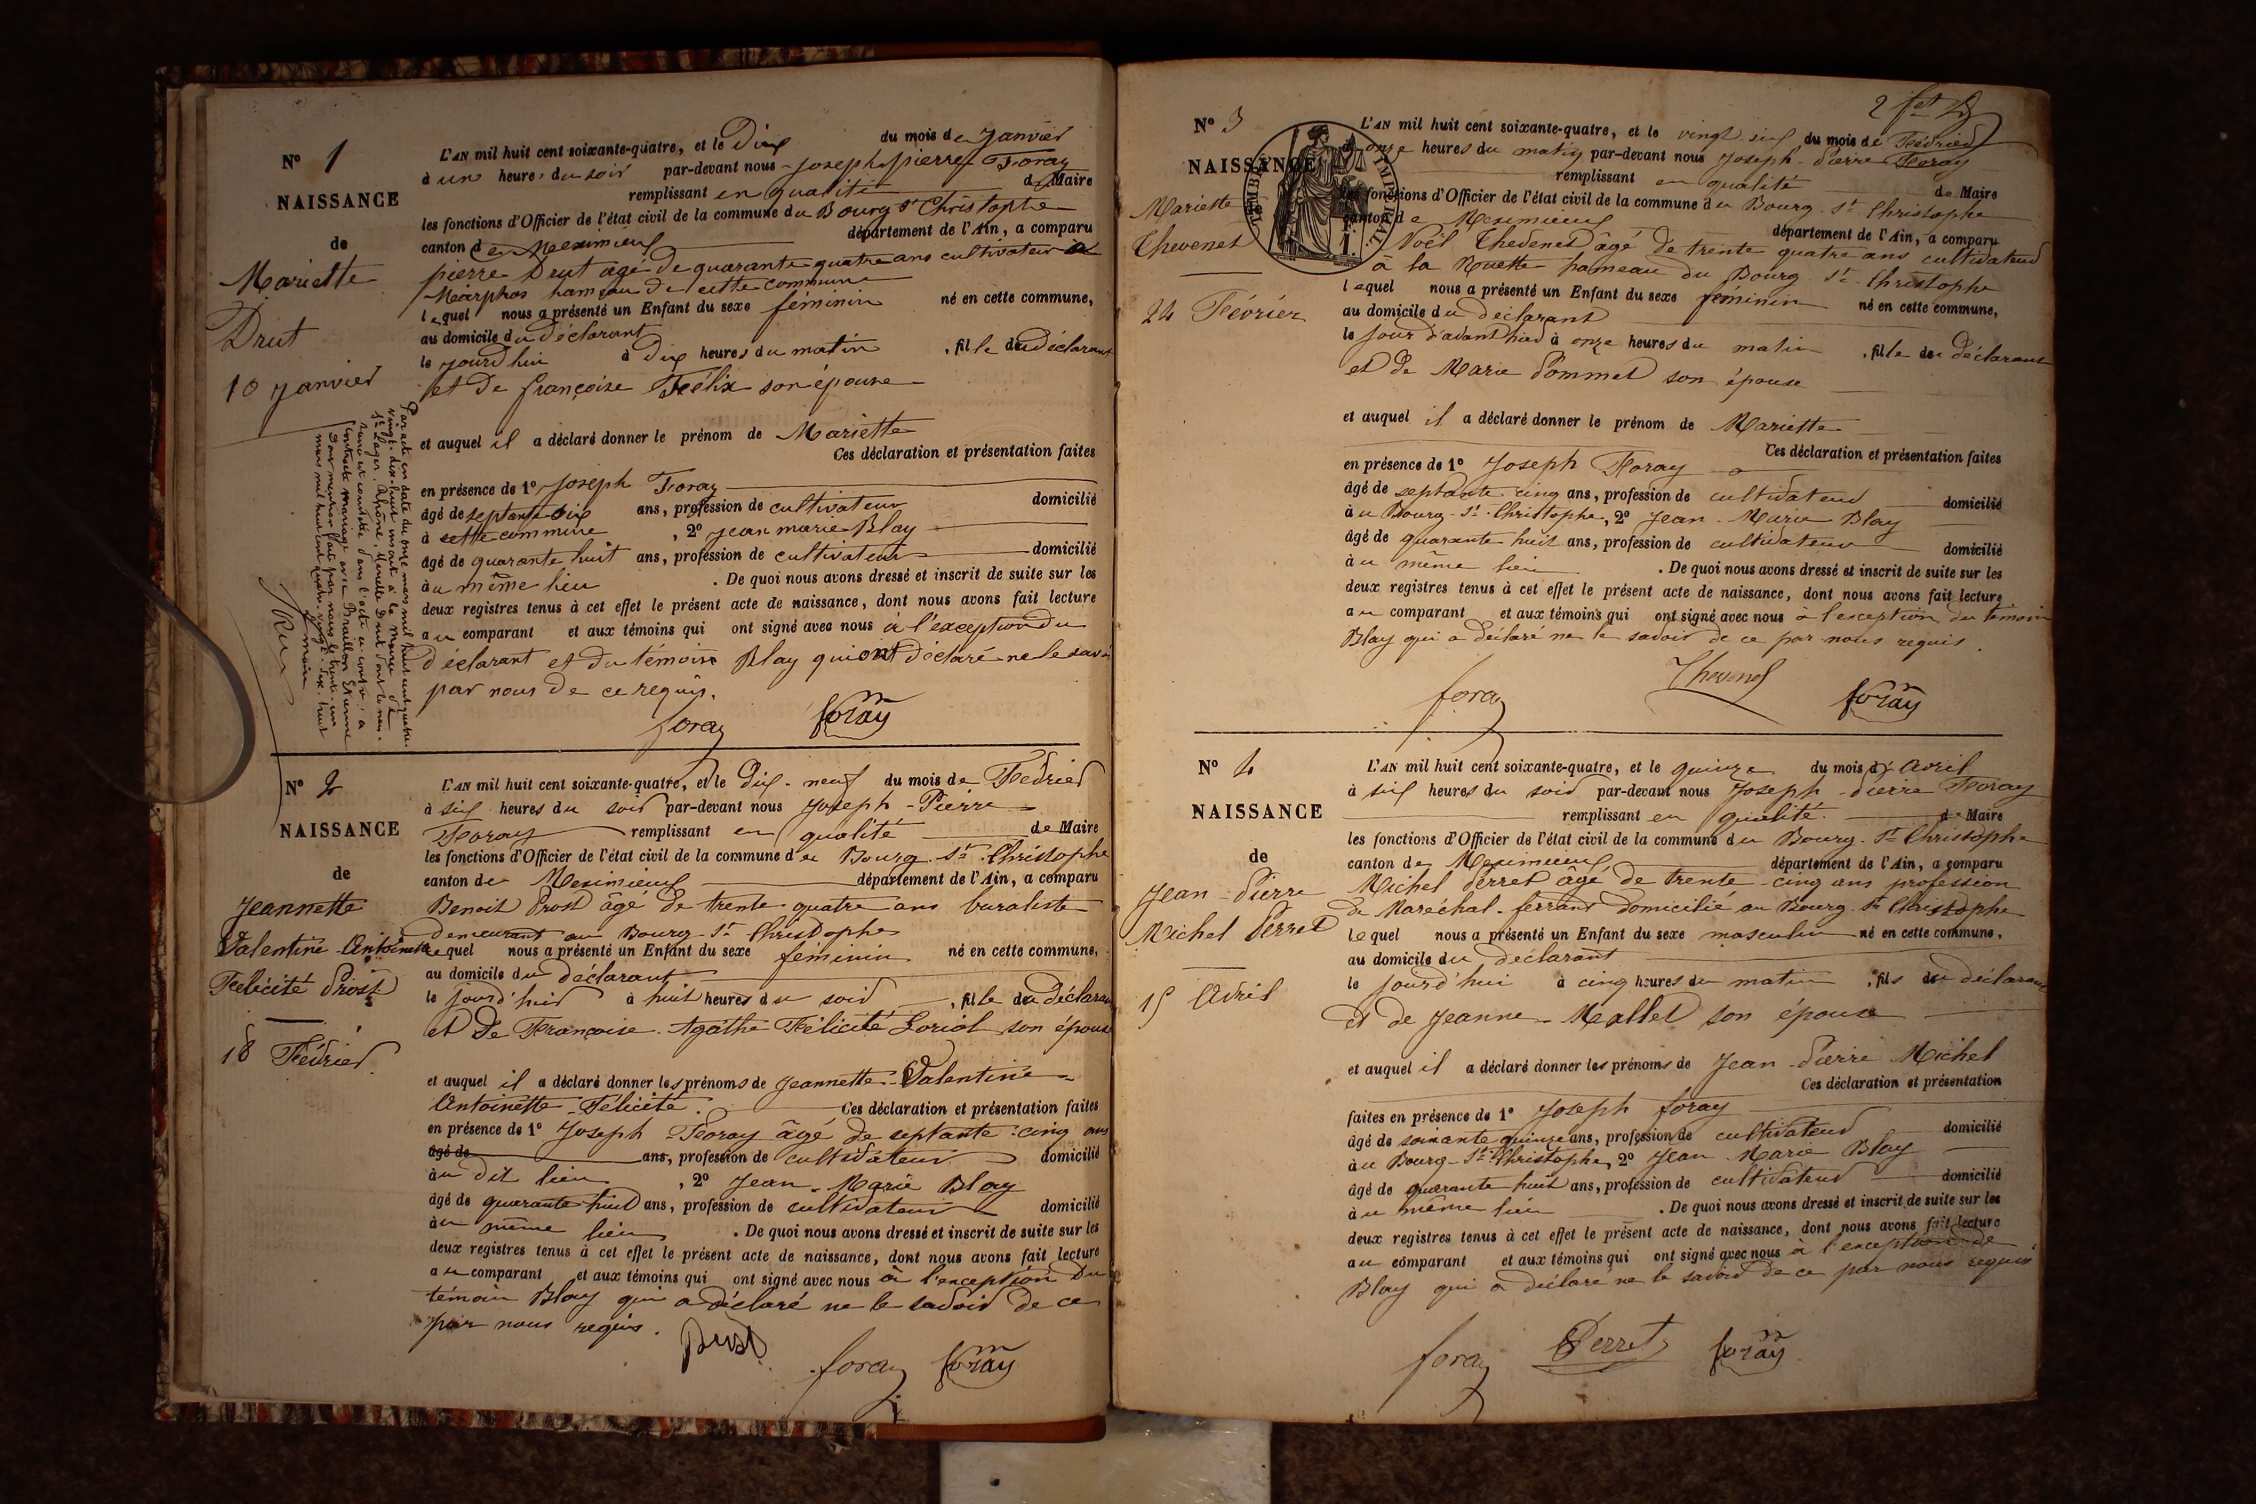 N° 1
NAISSANCE
de
Mariette
Drut
10 Janvier
L'AN mil huit cent soixante-quatre, et le Dix du mois de Janvier
à une heure du soir par-devant nous Joseph pierre Foray
remplissant en qualité de Maire
les fonctions d'Officier de l'état civil de la commune du Bourg St Christophe
canton de Meximieux département de l'Ain, a comparu
pierre Drut age de quarante quatre ans cultivateur a
Marphos hameau de cette commune
lequel nous a présenté un Enfant du sexe féminin né en cette commune,
au domicile du déclarant
le jourd'hui à Dix heures du matin , fille du déclarant
et De françoise Félix son épouse
et auquel il a déclaré donner le prénom de Mariette
Ces déclaration et présentation faites
en présence de 1° Joseph Foray
âgé de septante six ans, profession de cultivateur domicilié
à cette commune , 2° jean marie Blay
âgé de quarante huit ans, profession de cultivateur domicilié
au même lieu . De quoi nous avons dressé et inscrit de suite sur les
deux registres tenus à cet effet le présent acte de naissance, dont nous avons fait lecture
au comparant et aux témoins qui ont signé avec nous à l'exception du
déclarant et du témoin Blay qui ont déclaré ne le savoir
par nous De ce requis.
foray foray
Par acte en date du onze mars mil huit cent quatre-
vingt-dix huit inscrit à la Mairie de
St Lager, Rhône, Mariette Drut dont la nais-
sance est constatée dans l'acte ci-contre, a
contracté mariage avec Braillon Etienne
Dont mention faite par nous le trente-un
mars mil huit cent quatre-vingt-dix-huit
Le maire
N° 2
NAISSANCE
de
Jeannette
Valentine Antoinette
Félicité Prost
18 Février
L'AN mil huit cent soixante-quatre, et le Dix-neuf du mois de Février
à six heures du soir par-devant nous Joseph-Pierre
Foray remplissant en qualité de Maire
les fonctions d'Officier de l'état civil de la commune du Bourg-St-Christophe
canton de Meximieux département de l'Ain, a comparu
Benoit Prost âgé de trente quatre ans buraliste
demeurant au Bourg-St-Christophe
lequel nous a présenté un Enfant du sexe féminin né en cette commune,
au domicile du déclarant
le jourd'hui à huit heures du soir , fille du déclarant
et De Françoise-Agathe Félicité Loriol son épouse
et auquel il a déclaré donner les prénoms de Jeannette-Valentine-
Antoinette-Félicité. Ces déclaration et présentation faites
en présence de 1° Joseph Foray âgé de septante-cinq ans
âgé de ans, profession de cultivateur domicilié
au dit lieu , 2° Jean-Marie Blay
âgé de quarante huit ans, profession de cultivateur domicilié
au même lieu . De quoi nous avons dressé et inscrit de suite sur les
deux registres tenus à cet effet le présent acte de naissance, dont nous avons fait lecture
au comparant et aux témoins qui ont signé avec nous à l'exception du
témoin Blay qui a déclaré ne le savoir de ce
par nous requis.
Prost foray foray
N° 3
NAISSANCE
TIMBRE IMPERIAL
Mariette
Thevenet
24 Février
L'AN mil huit cent soixante-quatre, et le vingt-six du mois de Février
à onze heures du matin par-devant nous Joseph-Pierre Foray
remplissant en qualité de Maire
les fonctions d'Officier de l'état civil de la commune du Bourg-St-Christophe
canton de Meximieux département de l'Ain, a comparu
Noël Thevenet âgé de trente quatre ans cultivateur
à la Rouette hameau du Bourg-St-Christophe
lequel nous a présenté un Enfant du sexe féminin né en cette commune,
au domicile du déclarant
le jour d'avant hier à onze heures du matin , fille du déclarant
et de Marie Pommet son épouse
et auquel il a déclaré donner le prénom de Mariette
Ces déclaration et présentation faites
en présence de 1° Joseph Foray
âgé de septante cinq ans, profession de cultivateur domicilié
au Bourg-St-Christophe, 2° Jean-Marie Blay
âgé de quarante huit ans, profession de cultivateur domicilié
au même lieu . De quoi nous avons dressé et inscrit de suite sur les
deux registres tenus à cet effet le présent acte de naissance, dont nous avons fait lecture
au comparant et aux témoins qui ont signé avec nous à l'exception du témoin
Blay qui a déclaré ne le savoir de ce par nous requis.
foray Thevenet foray
N° 4
NAISSANCE
de
Jean-Pierre
Michel Perret
15 Avril
L'AN mil huit cent soixante-quatre, et le quinze du mois d'avril
à six heures du soir par-devant nous Joseph-Pierre Foray
remplissant en qualité de Maire
les fonctions d'Officier de l'état civil de la commune du Bourg-St-Christophe
canton de Meximieux département de l'Ain, a comparu
Michel Perret âgé de trente-cinq ans profession
de Maréchal-ferrant domicilié au Bourg-St-Christophe
lequel nous a présenté un Enfant du sexe masculin né en cette commune,
au domicile du déclarant
le jourd'hui à cinq heures du matin , fils du déclarant
et de Jeanne-Mallet son épouse
et auquel il a déclaré donner les prénoms de Jean-Pierre Michel
Ces déclaration et présentation
faites en présence de 1° Joseph foray
âgé de soixante quinze ans, profession de cultivateur domicilié
au Bourg-St-Christophe, 2° Jean-Marie Blay
âgé de quarante huit ans, profession de cultivateur domicilié
au même lieu . De quoi nous avons dressé et inscrit de suite sur les
deux registres tenus à cet effet le présent acte de naissance, dont nous avons fait lecture
au comparant et aux témoins qui ont signé avec nous à l'exception de
Blay qui a déclaré ne le savoir de ce par nous requis
foray Perret foray